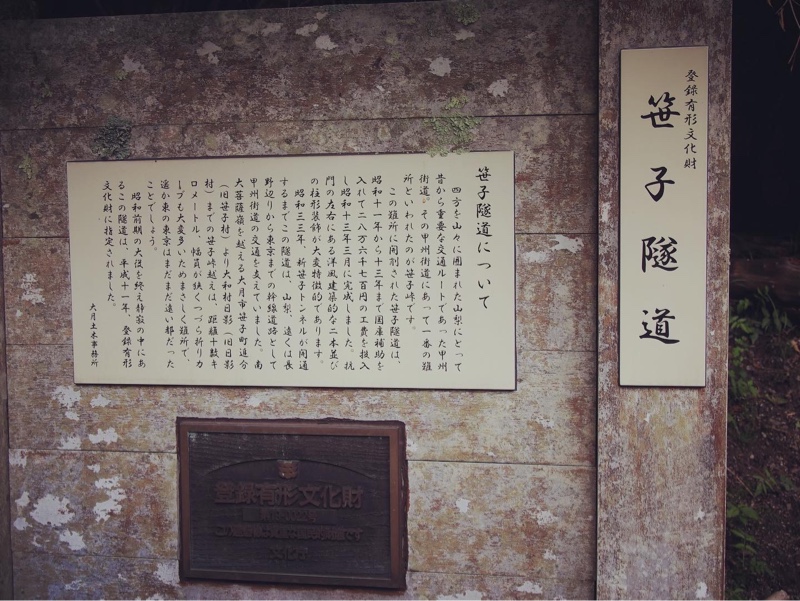 登録有形文化財
笹子隧道
笹子隧道について
四方を山々に囲まれた山梨にとって
昔から重要な交通ルートであった甲州
街道。その甲州街道にあって一番の難
所といわれたのが笹子峠です。
この難所に開削された笹子隧道は、
昭和十一年から十三年まで国庫補助を
入れて二八万六千七百円の工費を投入
し昭和十三年三月に完成しました。抗
門の左右にある洋風建築的な二本並び
の柱形装飾が大変特徴的であります。
昭和三三年、新笹子トンネルが開通
するまでこの隧道は、山梨、遠くは長
野辺りから東京までの幹線道路として
甲州街道の交通を支えていました。南
大菩薩嶺を越える大月市笹子町追分
（旧笹子村）より大和村日影（旧日影
村）までの笹子峠越えは、距離十数キ
ロメートル、幅員が狭くつづら折りカ
ーブも大変多いためまさしく難所で、
遥か東の東京はまだまだ遠い都だった
ことでしょう。
昭和前期の大役を終え静寂の中にあ
るこの隧道は、平成十一年、登録有形
文化財に指定されました。
大月土木事務所
登録有形文化財
文化庁